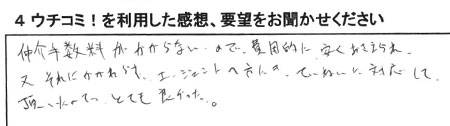 4 ウチコミ！を利用した感想、要望をお聞かせください
仲介手数料がかからないので、費用的に安くおさえられ、
又それにかかわらず、エージェントの方にも、ていねいに対応して
頂いたので、とても良かった。